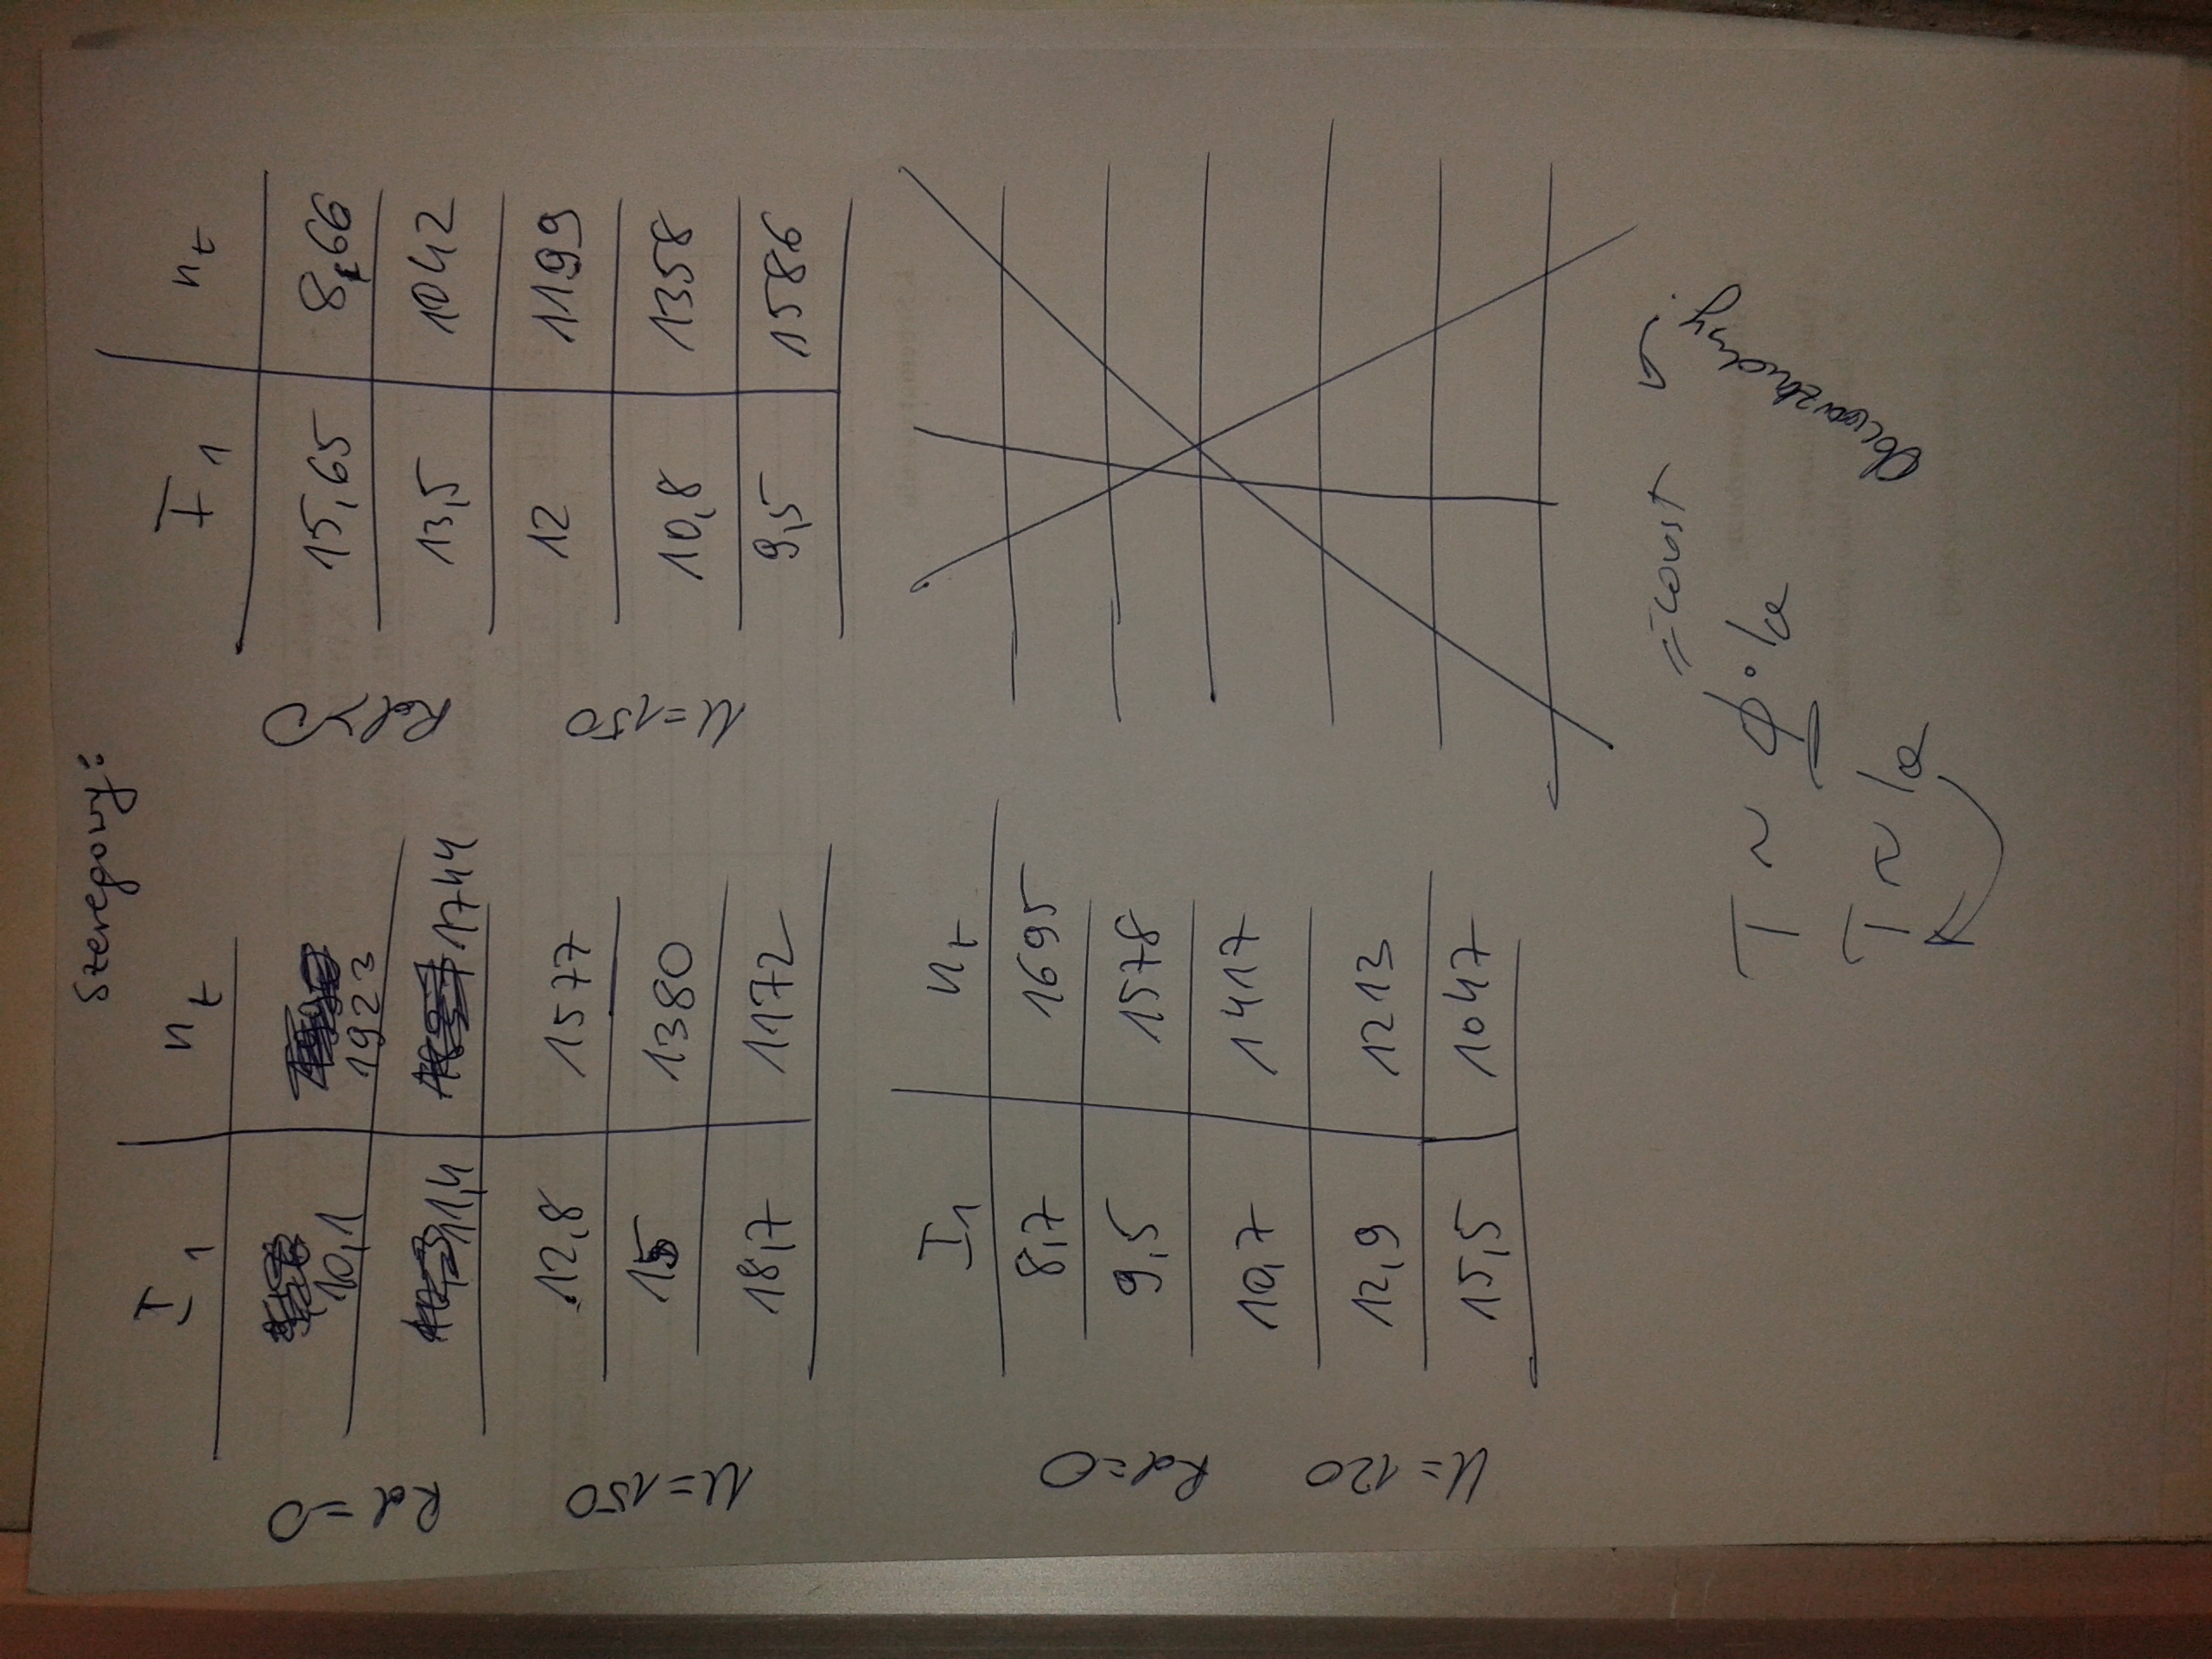 Szeregowy:
I1 nt
Rd=0
U=150
10,1 1923
11,4 1744
12,8 1577
15 1380
18,7 1172
I1 nt
Rd>0
U=150
15,65 8,66
13,5 1042
12 1199
10,8 1358
9,5 1586
I1 nt
Rd=0
U=120
8,7 1695
9,5 1578
10,7 1417
12,9 1213
15,5 1047
=const
T ~ ϕ·Ia
T ~ Ia
Obcowzbudny.